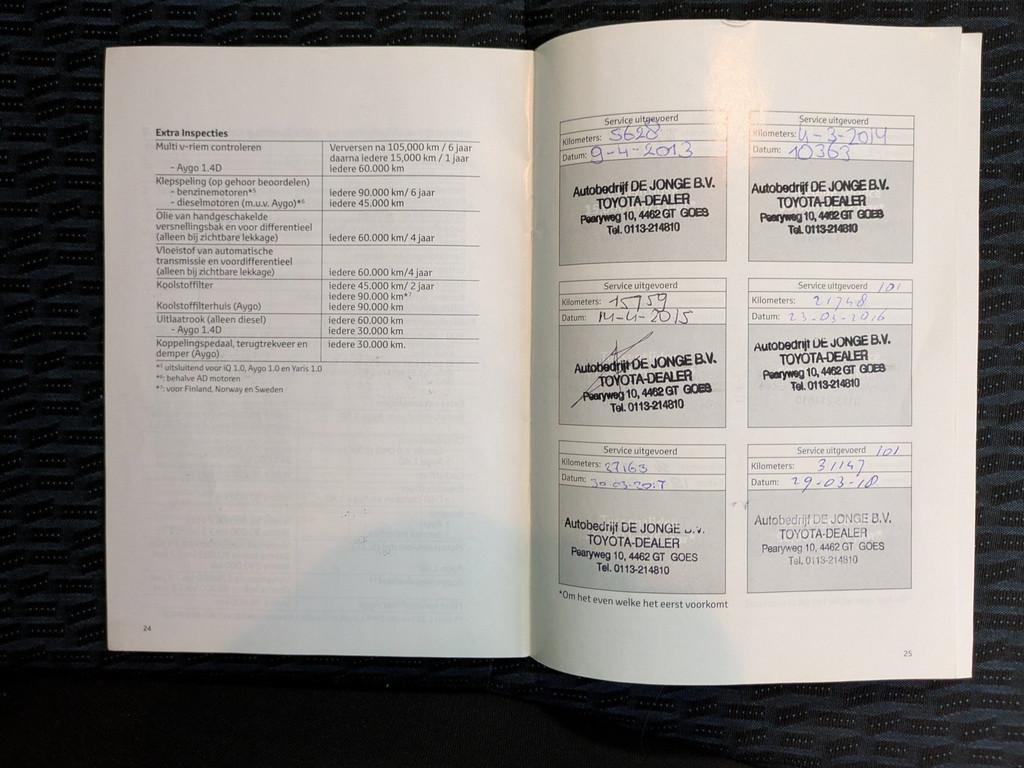 Extra Inspecties
Multi v-riem controleren Verversen na 105,000 km / 6 jaar
daarna iedere 15,000 km / 1 jaar
- Aygo 1.4D iedere 60.000 km
Klepspeling (op gehoor beoordelen)
- benzinemotoren*⁵ iedere 90.000 km/ 6 jaar
- dieselmotoren (m.u.v. Aygo)*⁶ iedere 45.000 km
Olie van handgeschakelde
versnellingsbak en voor differentieel
(alleen bij zichtbare lekkage) iedere 60.000 km/ 4 jaar
Vloeistof van automatische
transmissie en voordifferentieel
(alleen bij zichtbare lekkage) iedere 60.000 km/4 jaar
Koolstoffilter iedere 45.000 km/ 2 jaar
iedere 90.000 km*⁷
Koolstoffilterhuis (Aygo) iedere 90.000 km
Uitlaatrook (alleen diesel) iedere 60.000 km
- Aygo 1.4D iedere 30.000 km
Koppelingspedaal, terugtrekveer en iedere 30.000 km.
demper (Aygo)
*⁵ uitsluitend voor iQ 1.0, Aygo 1.0 en Yaris 1.0
*⁶: behalve AD motoren
*⁷: voor Finland, Norway en Sweden
24
Service uitgevoerd
Kilometers: 5628
Datum: 9-4-2013
Autobedrijf DE JONGE B.V.
TOYOTA-DEALER
Pearyweg 10, 4462 GT GOES
Tel. 0113-214810
Service uitgevoerd
Kilometers: 4-3-2014
Datum: 10363
Autobedrijf DE JONGE B.V.
TOYOTA-DEALER
Pearyweg 10, 4462 GT GOES
Tel. 0113-214810
Service uitgevoerd
Kilometers: 15759
Datum: 14-4-2015
Autobedrijf DE JONGE B.V.
TOYOTA-DEALER
Pearyweg 10, 4462 GT GOES
Tel. 0113-214810
Service uitgevoerd 101
Kilometers: 21748
Datum: 23-03-2016
Autobedrijf DE JONGE B.V.
TOYOTA-DEALER
Pearyweg 10, 4462 GT GOES
Tel. 0113-214810
Service uitgevoerd
Kilometers: 27163
Datum: 30-03-2017
Autobedrijf DE JONGE B.V.
TOYOTA-DEALER
Pearyweg 10, 4462 GT GOES
Tel. 0113-214810
Service uitgevoerd 101
Kilometers: 31147
Datum: 29-03-18
Autobedrijf DE JONGE B.V.
TOYOTA-DEALER
Pearyweg 10, 4462 GT GOES
Tel. 0113-214810
*Om het even welke het eerst voorkomt
25